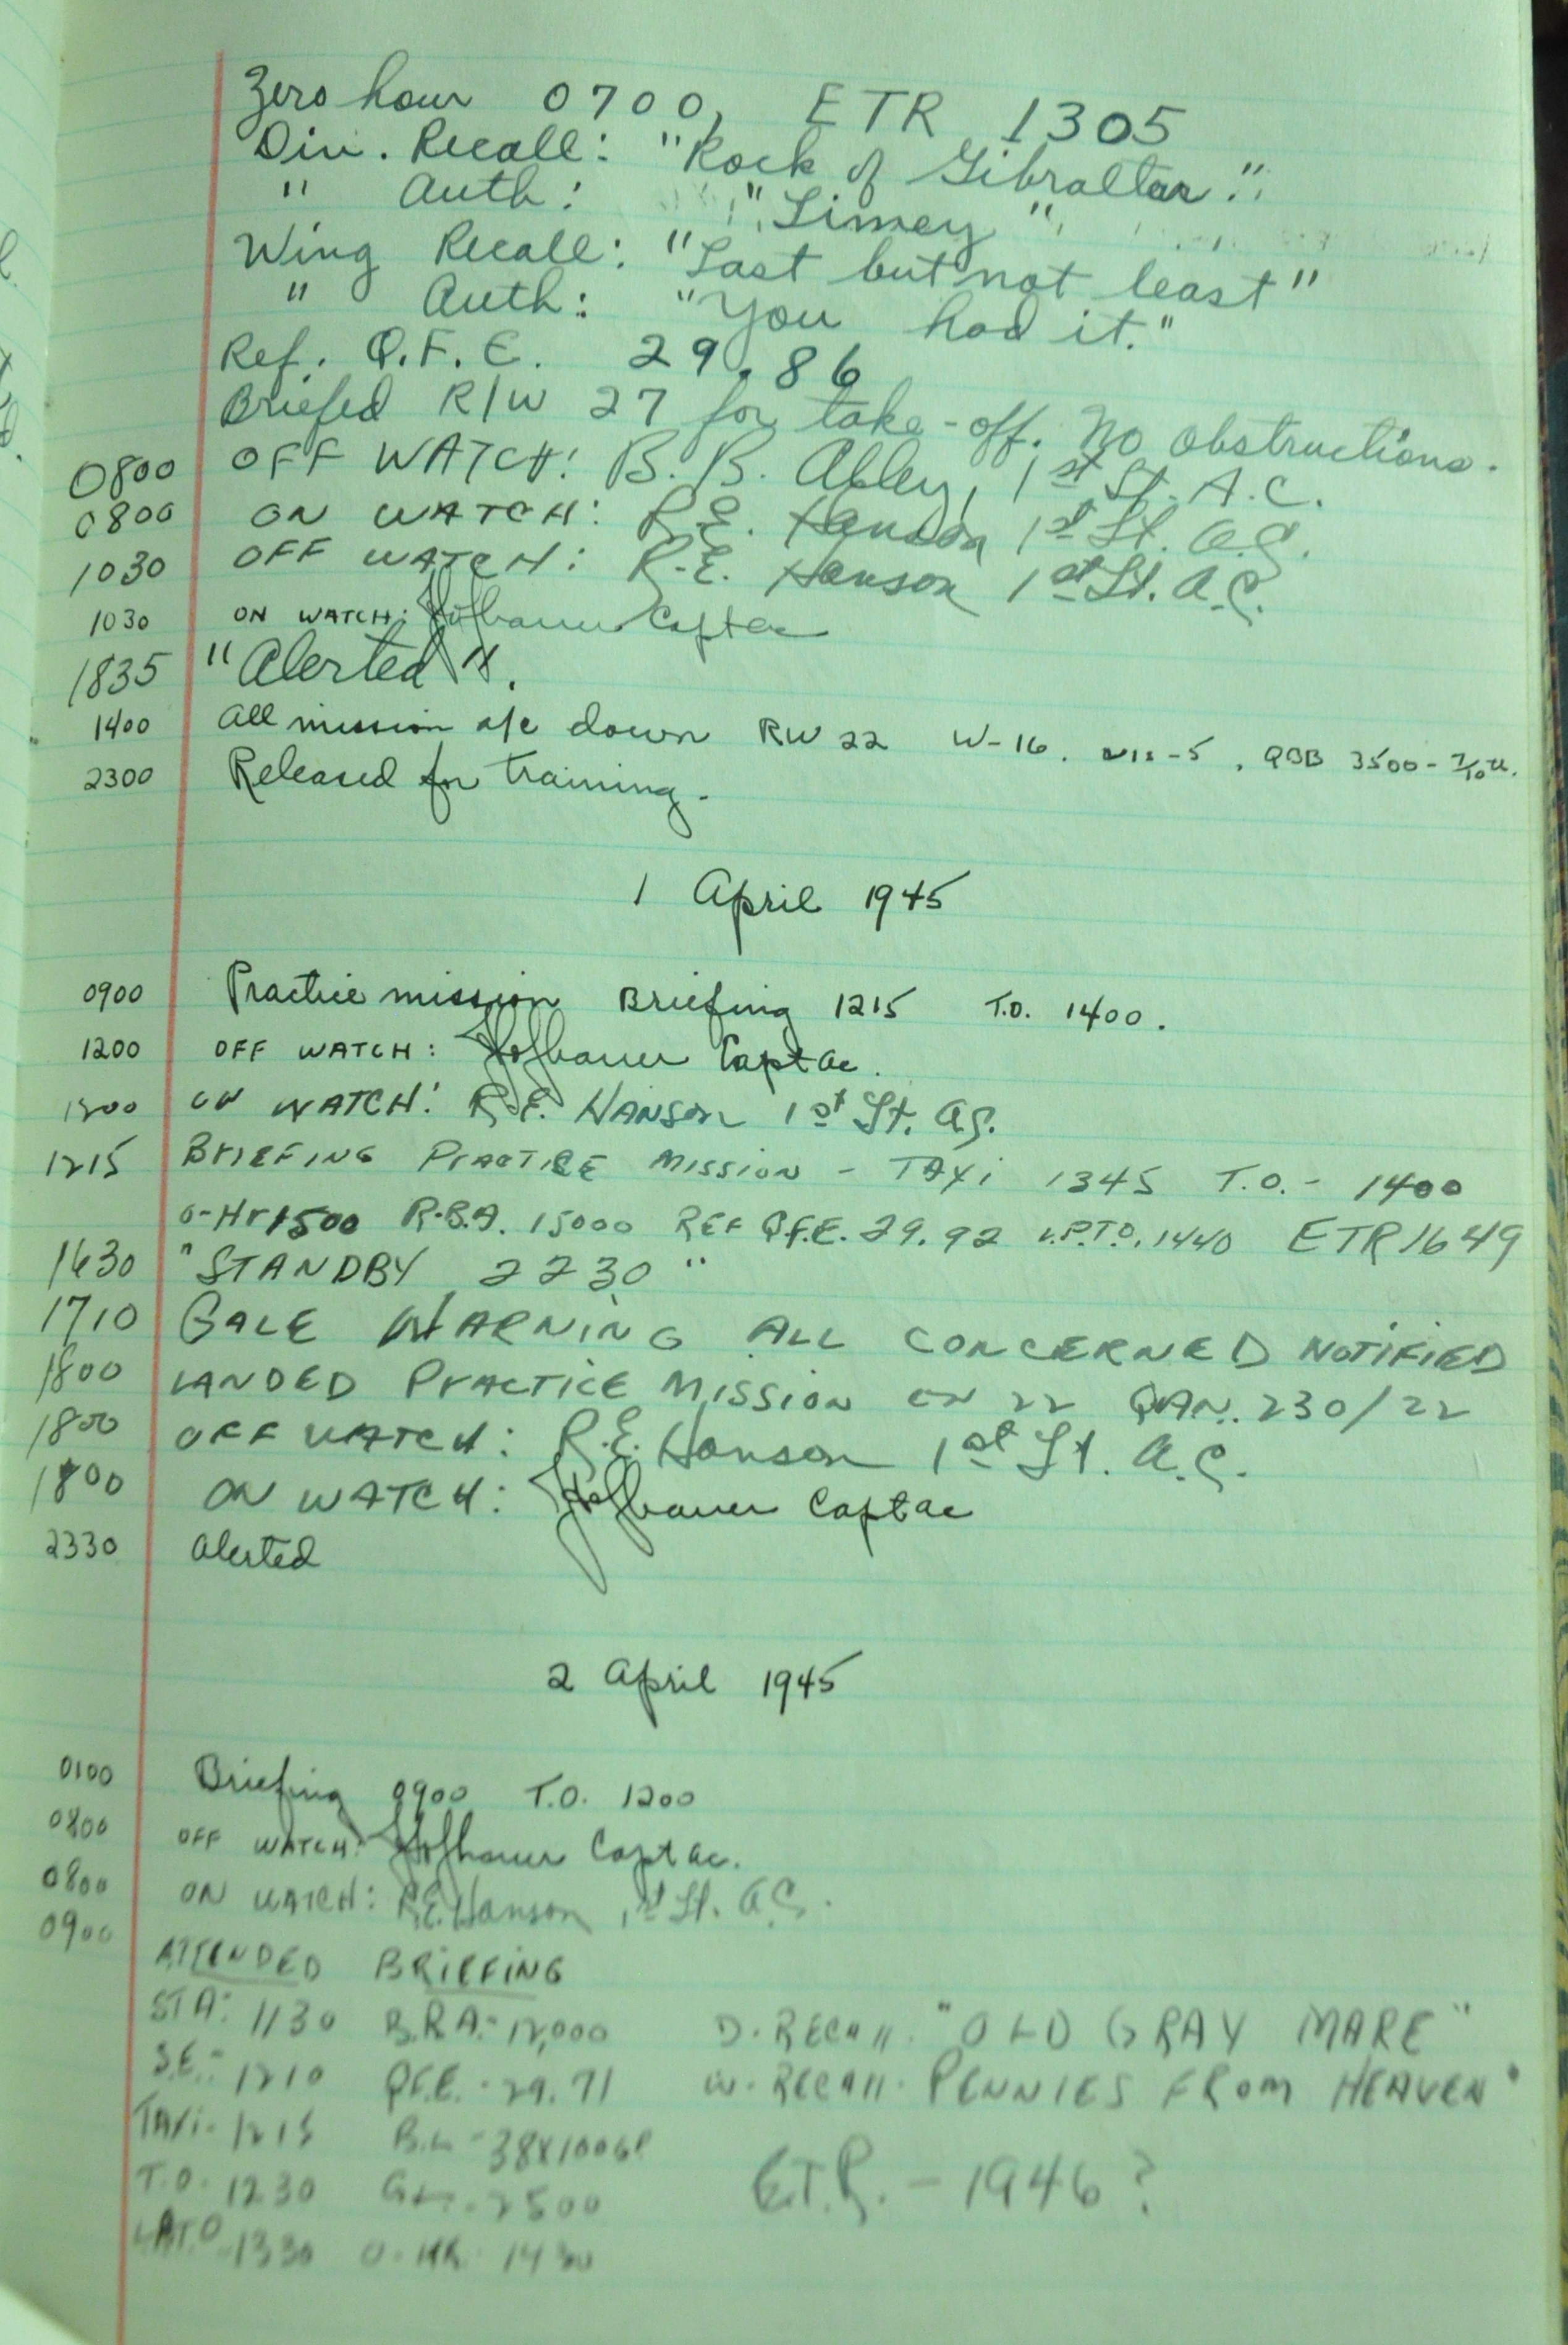 Zero hour 0700, ETR 1305
Div. Recall: "Rock of Gibraltar."
" Auth: "Limey"
Wing Recall: "Last but not least"
" Auth: "You had it."
Ref. Q.F.E. 29.86
Briefed R/W 27 for take-off. No obstructions.
0800 OFF WATCH: B. B. Abbey, 1st Lt. A.C.
0800 ON WATCH: R.E. Hanson 1st Lt. A.C.
1030 OFF WATCH: R.E. Hanson 1st Lt. A.C.
1030 ON WATCH: Hofbauer Capt ac
1835 "Alerted".
1400 All mission a/c down RW 22 W-16. vis-5, QBB 3500-7/10
2300 Released for training.
1 April 1945
0900 Practice mission Briefing 1215 T.O. 1400.
1200 OFF WATCH: Hofbauer Capt ac.
1200 ON WATCH: R.E. HANSON 1st Lt. A.C.
1215 BRIEFING PRACTICE MISSION - TAXI 1345 T.O.- 1400
0-Hr 1500 R.B.A. 15000 REF Q.F.E. 29.92 L.P.T.O. 1440 ETR 1649
1630 "STANDBY 2230"
1710 GALE WARNING ALL CONCERNED NOTIFIED
1800 LANDED PRACTICE MISSION ON 22 QAN. 230/22
1800 OFF WATCH: R.E. Hanson 1st Lt. A.C.
1800 ON WATCH: Hofbauer Capt ac
2330 Alerted
2 April 1945
0100 Briefing 0900 T.O. 1200
0800 OFF WATCH: Hofbauer Capt ac.
0800 ON WATCH: R.E. Hanson 1st Lt. A.C.
0900 ATTENDED BRIEFING
STA: 1130 B.R.A.- 12,000 D. RECALL. "OLD GRAY MARE"
S.E.- 1210 Q.F.E.- 29.71 W. RECALL. PENNIES FROM HEAVEN"
TAXI- 1215 B.L.- 38X100GP
T.O. 1230 2500 E.T.R. - 1946?
1330 O-HR. 1430